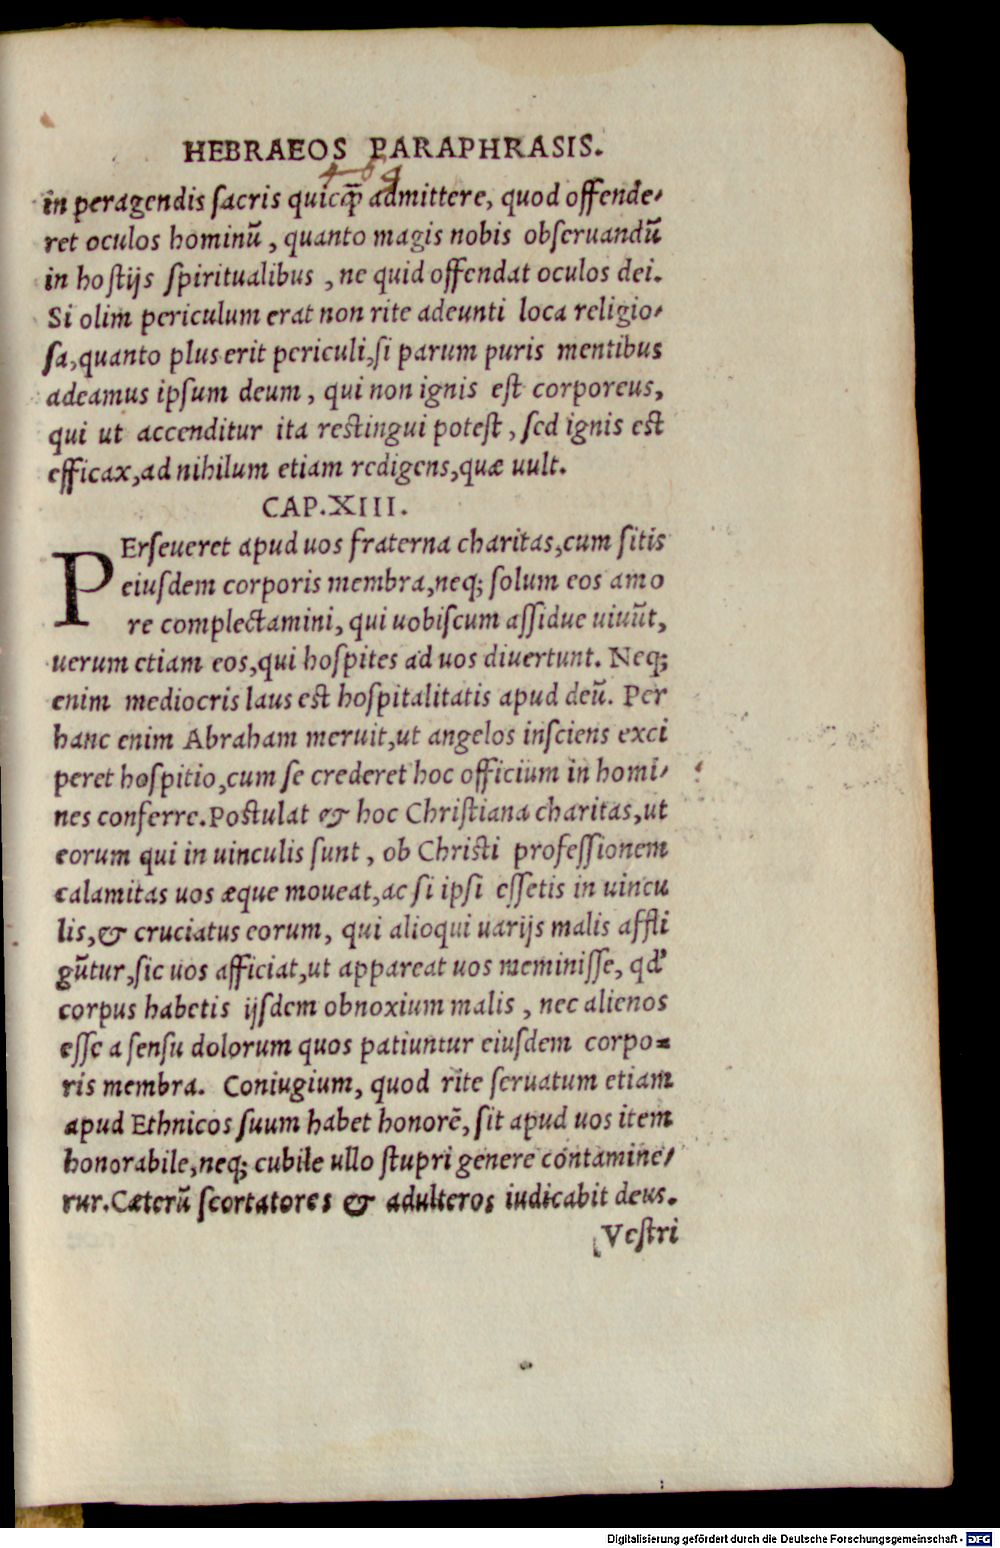 HEBRAEOS PARAPHRASIS.
in peragendis sacris quicq̄ admittere, quod offende⸗
ret oculos hominū, quanto magis nobis obseruandū
in hostijs spiritualibus, ne quid offendat oculos dei.
Si olim periculum erat non rite adeunti loca religio⸗
sa, quanto plus erit periculi, si parum puris mentibus
adeamus ipsum deum, qui non ignis est corporeus,
qui ut accenditur ita restingui potest, sed ignis est
efficax, ad nihilum etiam redigens, quæ uult.
CAP. XIII.
PErseueret apud uos fraterna charitas, cum sitis
eiusdem corporis membra, neq; solum eos amo
re complectamini, qui uobiscum assidue uiuūt,
uerum etiam eos, qui hospites ad uos diuertunt. Neq;
enim mediocris laus est hospitalitatis apud deū. Per
hanc enim Abraham meruit, ut angelos insciens exci
peret hospitio, cum se crederet hoc officium in homi⸗
nes conferre. Postulat & hoc Christiana charitas, ut
eorum qui in uinculis sunt, ob Christi professionem
calamitas uos æque moueat, ac si ipsi essetis in uincu
lis, & cruciatus eorum, qui alioqui uarijs malis affli
gūtur, sic uos afficiat, ut appareat uos meminisse, qd'
corpus habetis ijsdem obnoxium malis, nec alienos
esse a sensu dolorum quos patiuntur eiusdem corpo⸗
ris membra. Coniugium, quod rite seruatum etiam
apud Ethnicos suum habet honorē, sit apud uos item
honorabile, neq; cubile ullo stupri genere contamine⸗
rur. Cæterū scortatores & adulteros iudicabit deus.
Vestri
Digitalisierung gefördert durch die Deutsche Forschungsgemeinschaft - DFG